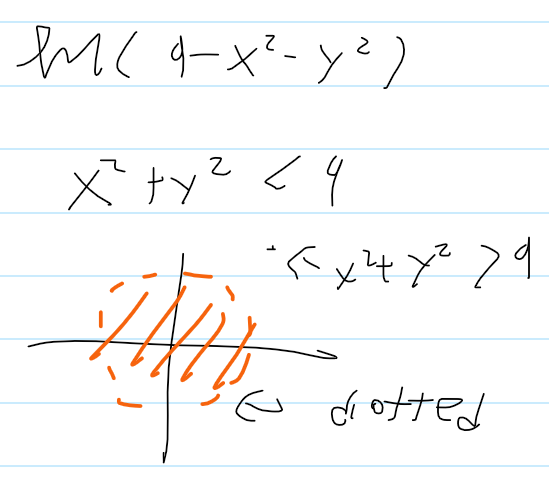 ln(9-x²-y²)
x²+y² < 9
← x²+y² > 9
← dotted